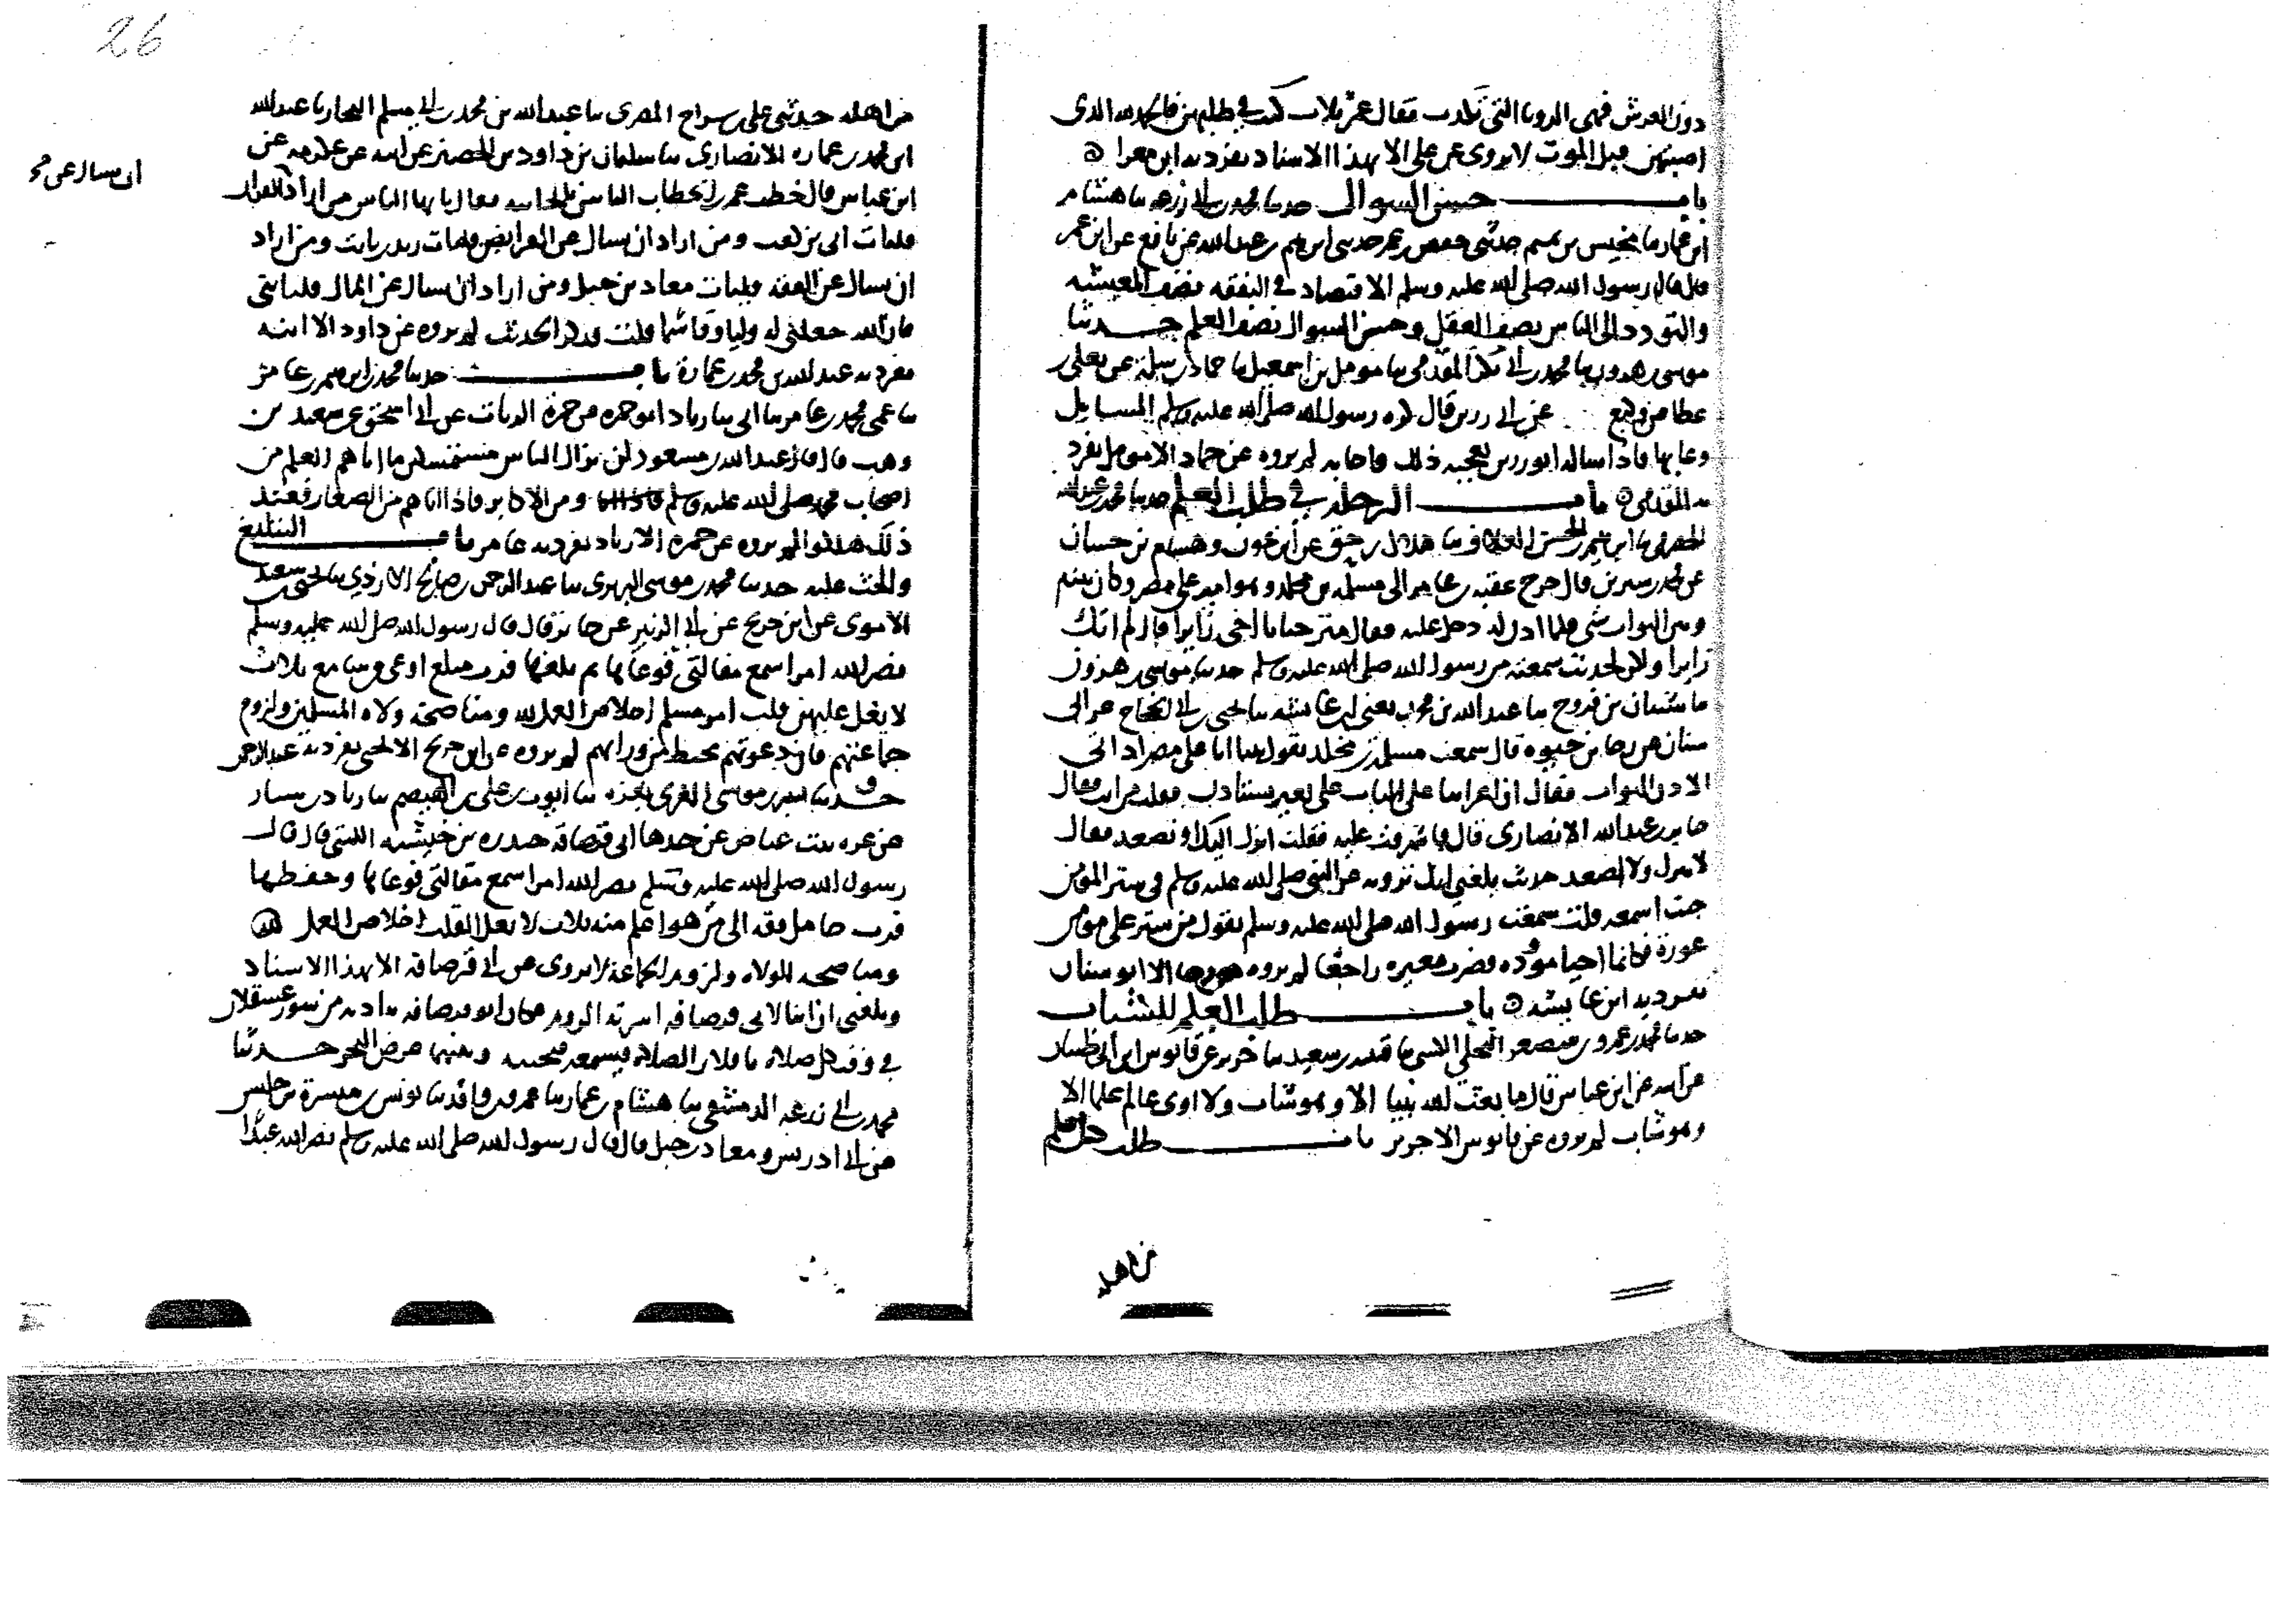 دون العرش فهى الرويا التى تكذب فقال عمر ثلاث كنت فى طلبهن فالحمد لله الذى
اصبتهن قبل الموت لا يروى عن على الا بهذا الاسناد تفرد به ابن مغرا
باب حسن السوال حدثنا محمد بن ابى زرعة نا هشام
ابن عمار نا مخيس بن تميم حدثنى حفص بن عمر حدثنى ابرهيم بن عبد الله عن نافع عن ابن عمر
قال قال رسول الله صلى الله عليه وسلم الاقتصاد فى النفقه نصف المعيشه
والتودد الى الناس نصف العقل وحسن السوال نصف العلم حدثنا
موسى بن هرون نا محمد بن ابى بكر المقدمى نا مومل بن اسمعيل نا حماد بن سلمة عن يعلى بن
عطا عن وكيع عن ابى رزين قال كره رسول الله صلى الله عليه وسلم المسايل
وعابها فاذا ساله ابو رزين يعجبه ذلك واجابه لم يروه عن حماد الا مومل تفرد
به المقدمى باب الرحله فى طلب العلم حدثنا محمد بن عبد الله
الحضرمى نا ابرهيم بن الحسن العلاف نا هلال بن حق عن ابن عون وهشام بن حسان
عن محمد بن سيرين قال خرج عقبه بن عامر الى مسلمه بن مخلد وهو امير على مصر وكان بينه
وبين البواب شى فلما اذن له دخل عليه فقال مرحبا يا اخى زايرا قال لم اتك
زايرا ولكن لحديث سمعته من رسول الله صلى الله عليه وسلم حدثنا موسى بن هرون
نا شيبان بن فروخ نا عبد الله بن محمد يعنى ابن عايشه نا يحيى بن ابى الحجاج عن ابى
سنان عن رجا بن حيوه قال سمعت مسلمة بن مخلد يقول بينا انا على مصر اذ اتى
الاذن البواب فقال ان اعرابيا على الباب على بعير يستاذن فقلت من انت فقال
جابر بن عبد الله الانصارى قال فاشرفت عليه فقلت انزل اليك او تصعد فقال
لا تنزل ولا اصعد حديث بلغنى انك ترويه عن النبى صلى الله عليه وسلم فى ستر المؤمن
جئت اسمعه قلت سمعت رسول الله صلى الله عليه وسلم يقول من ستر على مؤمن
عورة فكانما احيا موؤده فضرب بعيره راجعا لم يروه عن رجا الا ابو سنان
تفرد به ابن عايشه باب طلب العلم للشباب
حدثنا محمد بن عمرو بن منصور البجلى نا قتيبه بن سعيد نا جرير عن قابوس بن ابى ظبيان
عن ابيه عن ابن عباس قال ما بعث الله نبيا الا وهو شاب ولا اوتى عالم علما الا
وهو شاب لم يروه عن قابوس الا جرير باب طلب كل علم
من اهله
26
من اهله حدثنى على بن سراج المصرى نا عبد الله بن محمد بن ابى مسلم نا عبد الله
ابن محمد بن عماره الانصارى نا سليمان بن داود بن الحصين عن ابيه عن عكرمه عن
ابن عباس قال خطب عمر بن الخطاب الناس بالجابيه فقال يا ايها الناس من اراد القران
ان يسال عن
فليات ابى بن كعب ومن اراد ان يسال عن الفرايض فليات زيد بن ثابت ومن اراد
ان يسال عن الفقه فليات معاذ بن جبل ومن اراد ان يسال عن المال فلياتنى
فان الله جعلنى له وليا وقاسما قلت فذكر الحديث لم يروه عن داود الا ابنه
تفرد به عبد الله بن محمد بن عمارة باب حدثنا محمد بن ابرهيم بن عامر
نا عمى محمد بن عامر نا ابى نا زياد ابو حمزه عن حمزة الزيات عن ابى اسحق عن سعيد بن
وهب قال قال عبد الله بن مسعود لن يزال الناس مستمسكين ما اتاهم العلم من
اصحاب محمد صلى الله عليه وسلم ومن الاكابر فاذا اتاهم من الصغار فعند
ذلك هلكوا لم يروه عن حمزه الا زياد تفرد به عامر باب التبليغ
والحث عليه حدثنا محمد بن موسى البربرى نا عبد الرحمن بن صالح الازدى نا يحيى بن سعيد
الاموى عن ابن جريج عن ابى الزبير عن جابر قال قال رسول الله صلى الله عليه وسلم
نضر الله امرا سمع مقالتى فوعاها ثم بلغها فرب مبلغ اوعى من سامع ثلاث
لا يغل عليهن قلب امرء مسلم اخلاص العمل لله ومناصحة ولاه المسلمين ولزوم
جماعتهم فان دعوتهم تحيط من ورائهم لم يروه عن ابن جريج الا يحيى تفرد به عبد الرحمن
حدثنا بشر بن موسى الغزى بغزه نا ايوب بن على بن الهيصم نا زياد بن سيار
عن عزه بنت عياض عن جدها ابى قرصافة جندره بن خيشنه الليثى قال قال
رسول الله صلى الله عليه وسلم نضر الله امرا سمع مقالتى فوعاها وحفظها
فرب حامل فقه الى من هو اعلم منه ثلاث لا يغل القلب اخلاص العمل لله
ومناصحه الولاه ولزوم الجماعة لا يروى عن ابى قرصافة الا بهذا الاسناد
وبلغنى ان ابنا لابى قرصافه اسرته الروم فكان ابو قرصافه يناديه من سور عسقلان
فى وقت كل صلاة يا فلان الصلاة فيسمعه فيجيبه وبينهما عرض البحر حدثنا
محمد بن ابى زرعه الدمشقى نا هشام بن عمار نا عمرو بن واقد نا يونس بن ميسرة بن حلبس
عن ابى ادريس ومعاذ بن جبل قال قال رسول الله صلى الله عليه وسلم نضر الله عبدا